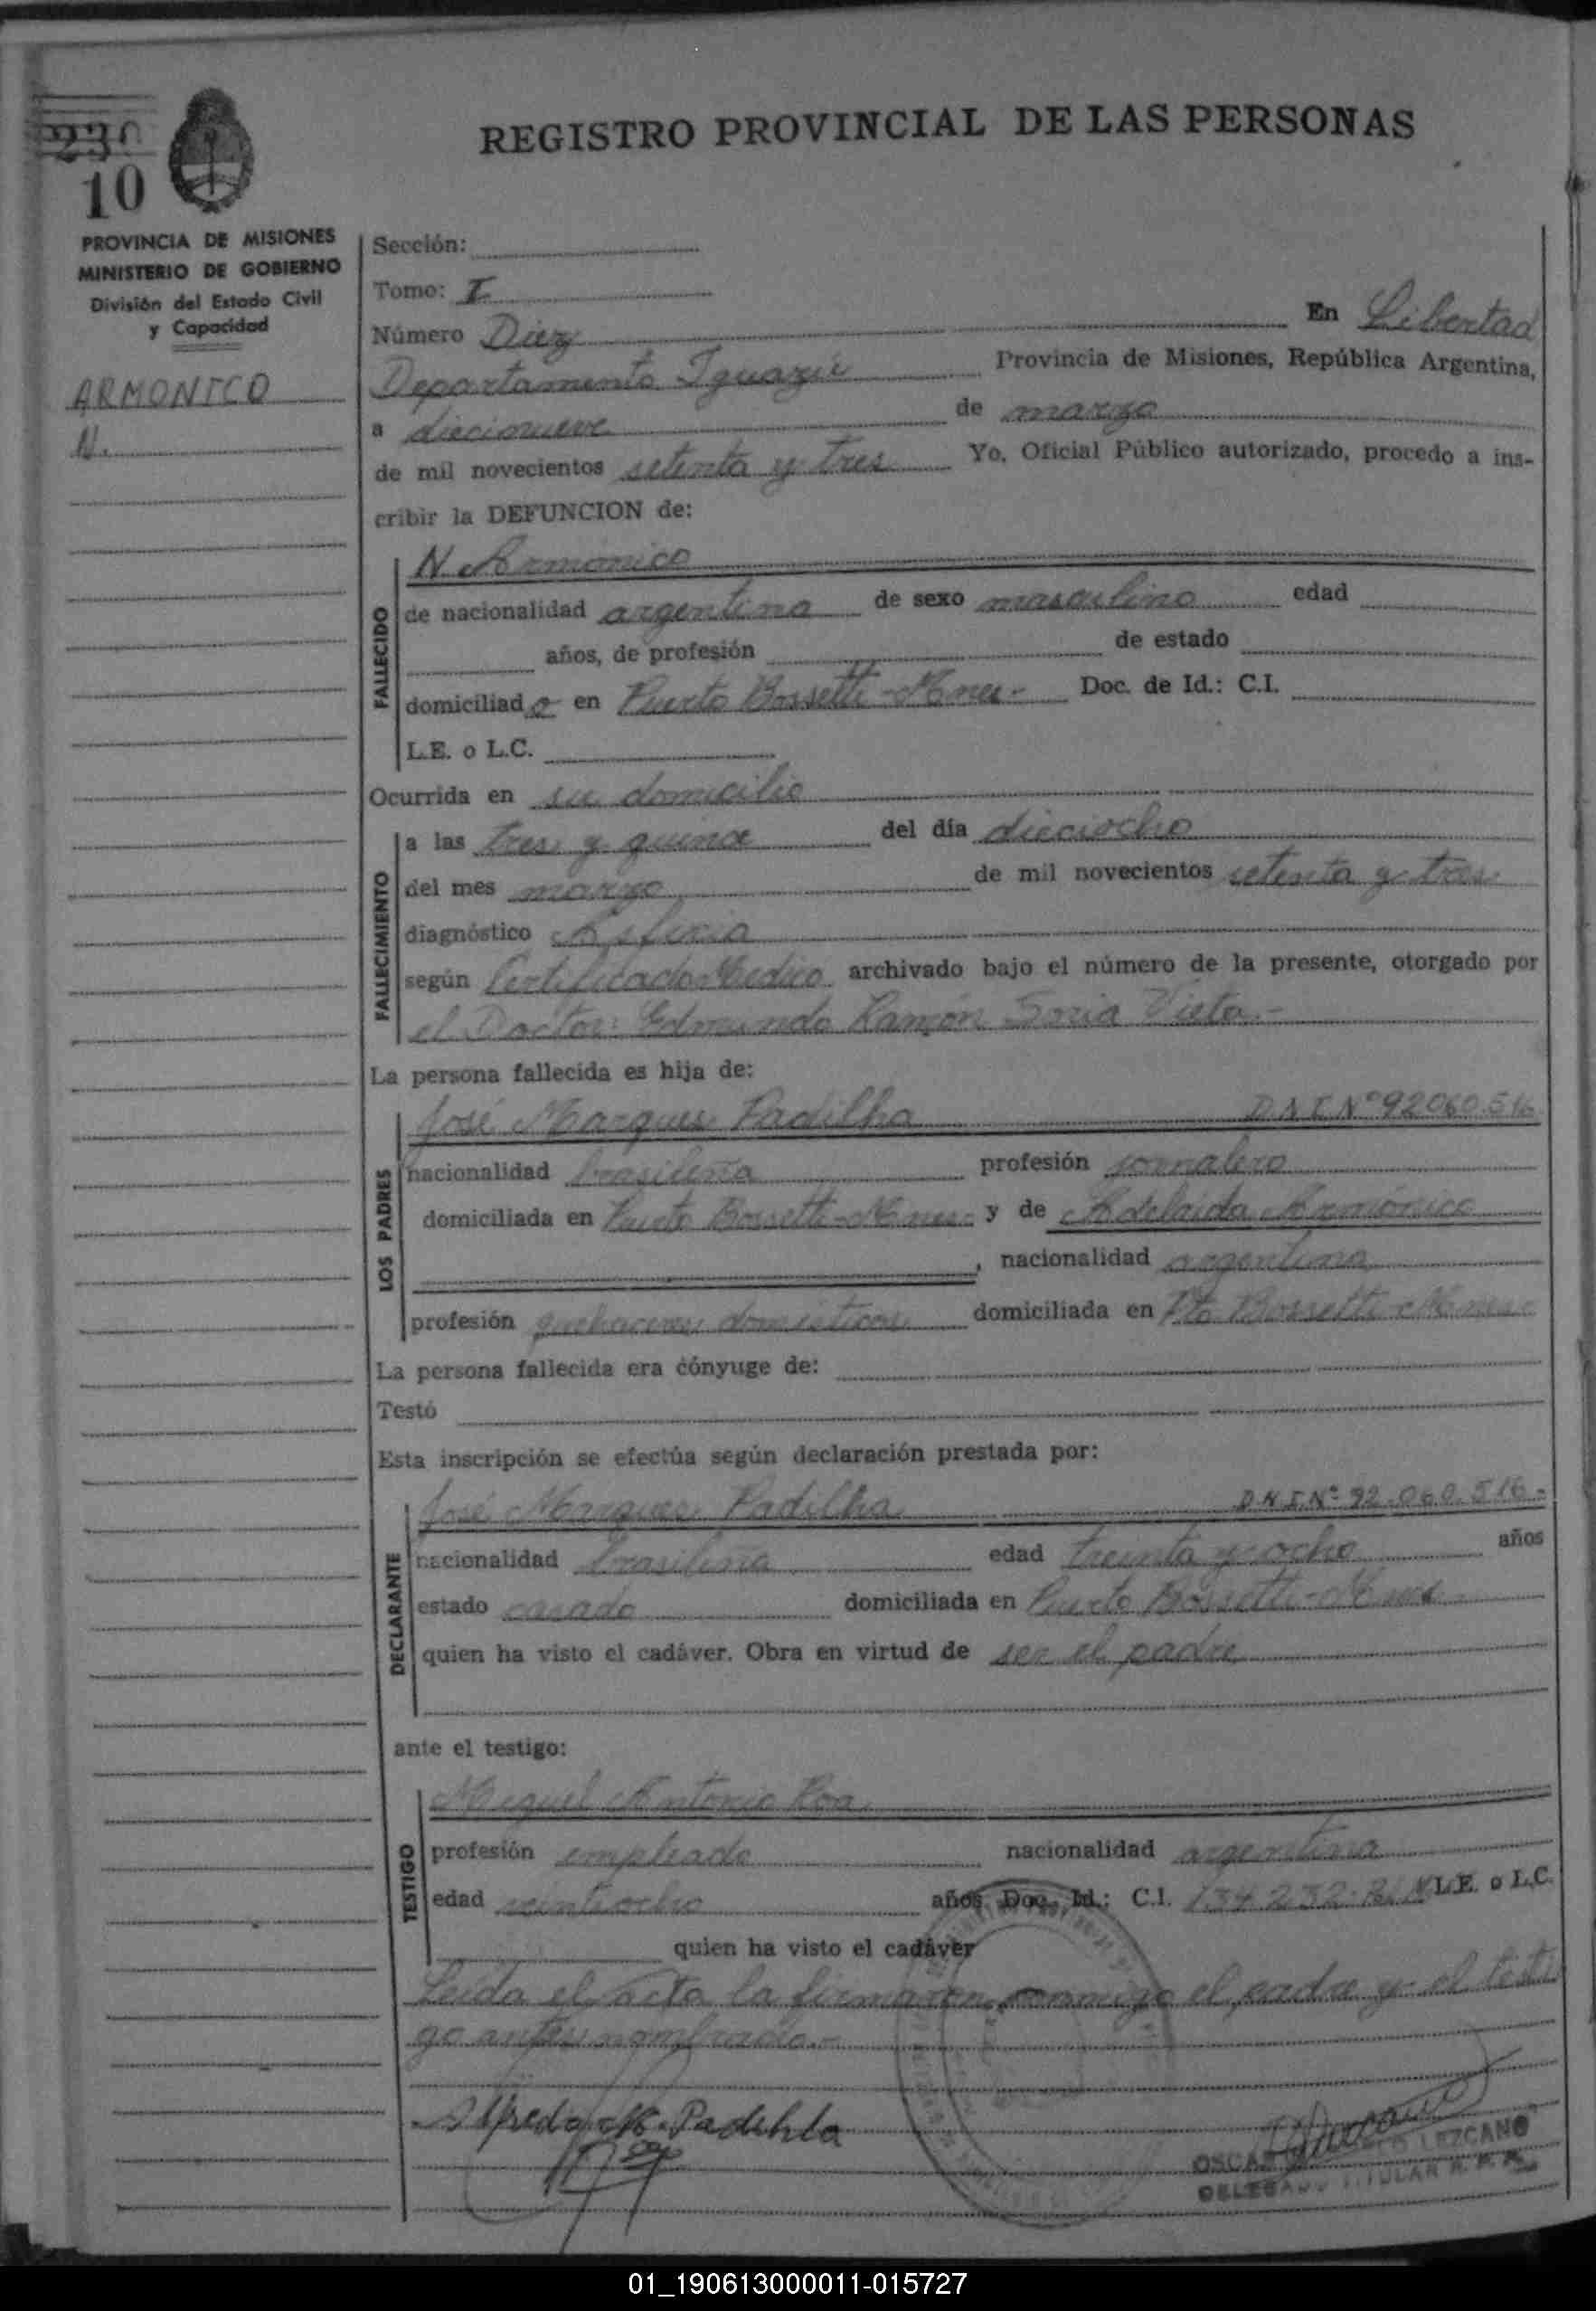 REGISTRO PROVINCIAL DE LAS PERSONAS
10
PROVINCIA DE MISIONES
MINISTERIO DE GOBIERNO
División del Estado Civil
y Capacidad
ARMONICO
N.
Sección:
Tomo: I
Número Diez En Libertad
Departamento Iguazú Provincia de Misiones, República Argentina,
a diecinueve de marzo
de mil novecientos setenta y tres Yo, Oficial Público autorizado, procedo a ins-
cribir la DEFUNCION de:
FALLECIDO
N. Armónico
de nacionalidad argentina de sexo masculino edad
años, de profesión de estado
domiciliado en Puerto Bossetti - Mnes - Doc. de Id.: C.I.
L.E. o L.C.
Ocurrida en su domicilio
FALLECIMIENTO
a las tres y quince del día dieciocho
del mes marzo de mil novecientos setenta y tres
diagnóstico Asfixia
según Certificado Médico archivado bajo el número de la presente, otorgado por
el Doctor: Edmundo Ramón Soria Vieta.-
La persona fallecida es hija de:
LOS PADRES
José Marques Padilha D.N.I. Nº 92060.516
nacionalidad brasileña profesión jornalero
domiciliada en Puerto Bossetti - Mnes - y de Adelaida Armónico
, nacionalidad argentina
profesión quehaceres domésticos domiciliada en Pto Bossetti - Mnes -
La persona fallecida era cónyuge de:
Testó
Esta inscripción se efectúa según declaración prestada por:
DECLARANTE
José Marques Padilha D.N.I. Nº 92.060.516.-
nacionalidad brasileña edad treinta y ocho años
estado casado domiciliada en Puerto Bossetti - Mnes -
quien ha visto el cadáver. Obra en virtud de ser el padre
ante el testigo:
TESTIGO
Miguel Antonio Roa
profesión empleado nacionalidad argentina
edad veintiocho años, Doc. Id.: C.I. 134.232 L.E. o L.C.
quien ha visto el cadáver
Leída el acta la firmaron conmigo el padre y el testi
go antes nombrado.-
Alfredo M. Padilha
OSCAR LEZCANO
DELEGADO TITULAR R.P.P.
01_190613000011-015727